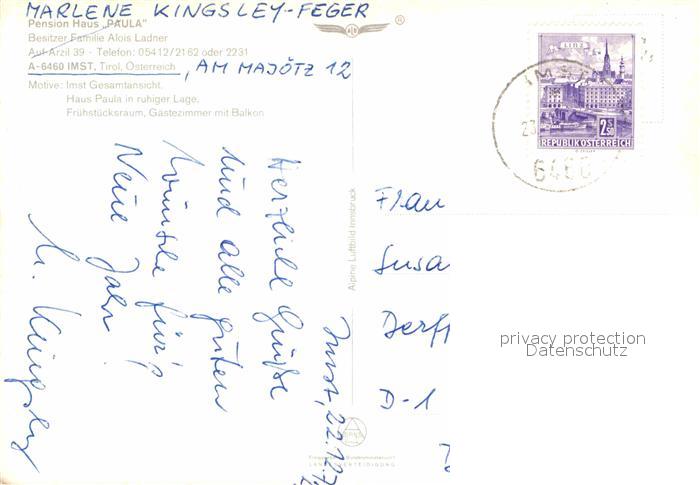 MARLENE KINGSLEY-FEGER
Pension Haus „PAULA"
Besitzer Familie Alois Ladner
Auf Arzil 39 - Telefon: 05412/2162 oder 2231
A-6460 IMST, Tirol, Österreich
, AM MAJÖTZ 12
Motive: Imst Gesamtansicht,
Haus Paula in ruhiger Lage,
Frühstücksraum, Gästezimmer mit Balkon
Imst, 22.12.7
Herzliche Grüße
und alle guten
Wünsche für's
Neue Jahr!
M. Kingsley
Alpine Luftbild Innsbruck
LANDESVERTEIDIGUNG
LINZ
2.50
REPUBLIK ÖSTERREICH
IMST
23
6460
Frau
Susa
Derff
D-1
privacy protection
Datenschutz